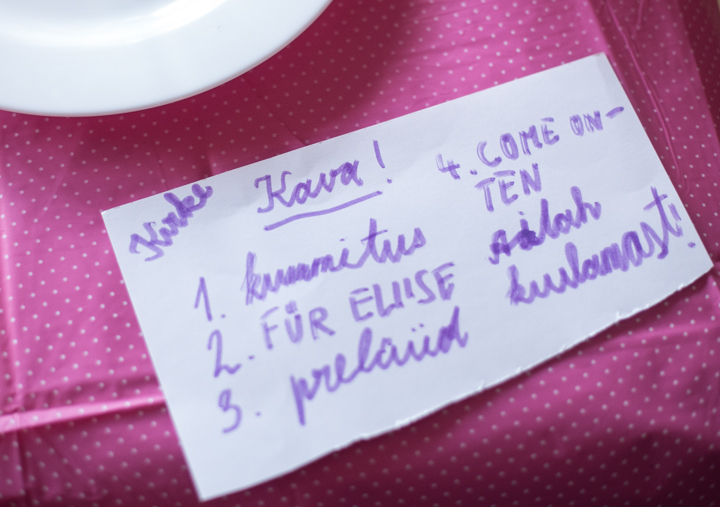 Kirke
Kava!
1. kummitus
2. FÜR ELIISE
3. prelüüd
4. COME ON-
TEN
Aitäh
kuulamast!